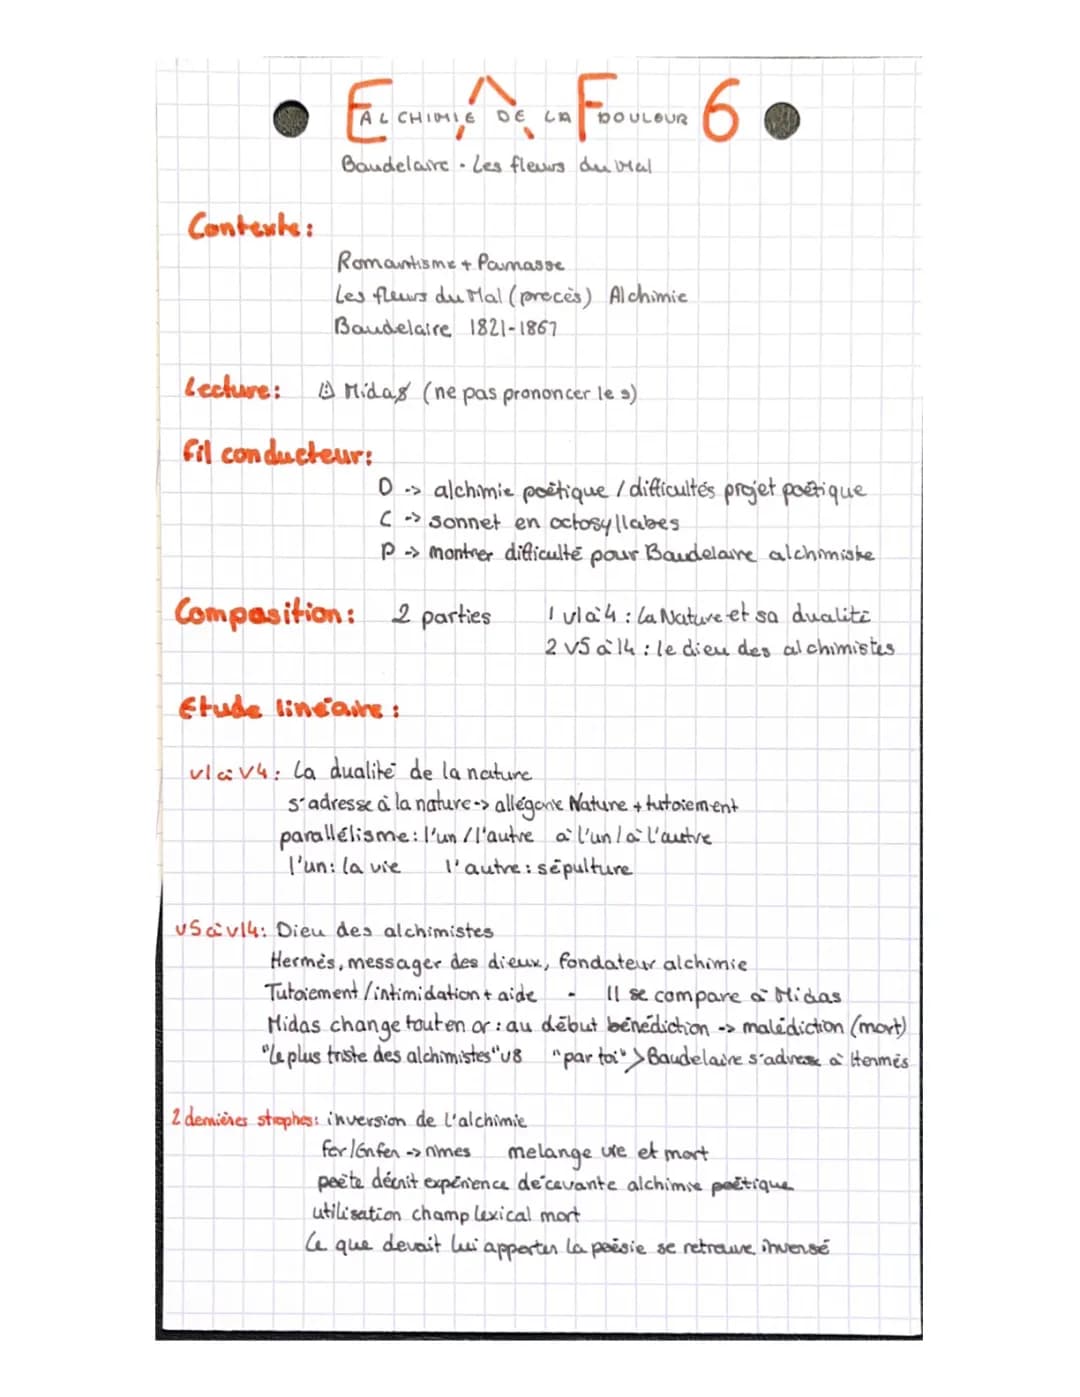 E A F 6
ALCHIMIE DE LA DOULEUR
Baudelaire - Les fleurs du Mal
Contexte :
Romantisme + Parnasse
Les fleurs du Mal (procès) Alchimie
Baudelaire 1821-1867
Lecture : Midas (ne pas prononcer le s)
Fil conducteur :
D -> alchimie poétique / difficultés projet poétique
C -> sonnet en octosyllabes
P -> montrer difficulté pour Baudelaire alchimiste
Composition : 2 parties 1 v1 à 4 : La Nature et sa dualité
2 v5 à 14 : le dieu des alchimistes
Etude linéaire :
v1 à v4 : La dualité de la nature
s'adresse à la nature -> allégorie Nature + tutoiement
parallélisme : l'un / l'autre à l'un / à l'autre
l'un : la vie l'autre : sépulture
v5 à v14 : Dieu des alchimistes
Hermès, messager des dieux, fondateur alchimie
Tutoiement / intimidation + aide - Il se compare à Midas
Midas change tout en or : au début bénédiction -> malédiction (mort)
"Le plus triste des alchimistes" v8 "par toi" > Baudelaire s'adresse à Hermès
2 dernières strophes : inversion de l'alchimie
fer / Enfer -> rimes melange vie et mort
poète décrit expérience décevante alchimie poétique
utilisation champ lexical mort
Ce que devait lui apporter la poésie se retrouve inversé